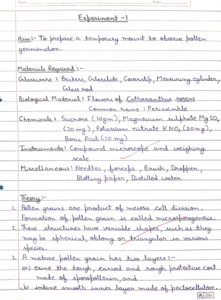 Experiment -1
Aim:- To prepare a temporary mount to observe pollen
germination.
Materials Required:-
Glassware: Beakers, Glass slide, Coverslip, Measuring cylinder,
Glass rod
Biological Material: Flowers of Catharanthus roseus
Common name: Periwinkle
Chemicals: Sucrose (10gm), Magnesium sulphate MgSO4
(20mg), Potassium nitrate KNO3 (20mg),
Boric Acid (10mg)
Instruments: Compound microscope and weighing
scale
Miscellaneous: Needles, forceps, Brush, Dropper,
Blotting paper, Distilled water
Theory:-
1. Pollen grains are product of meiosis cell division.
Formation of pollen grain is called microsporogenesis.
2. These structures have variable shapes, such as they
may be spherical, oblong or triangular in various
species.
3. A mature pollen grain has two layers:-
a) exine the tough, carved and rough protective coat
made of sporopollenin, and
b) intine smooth inner layer made of pectocellulose